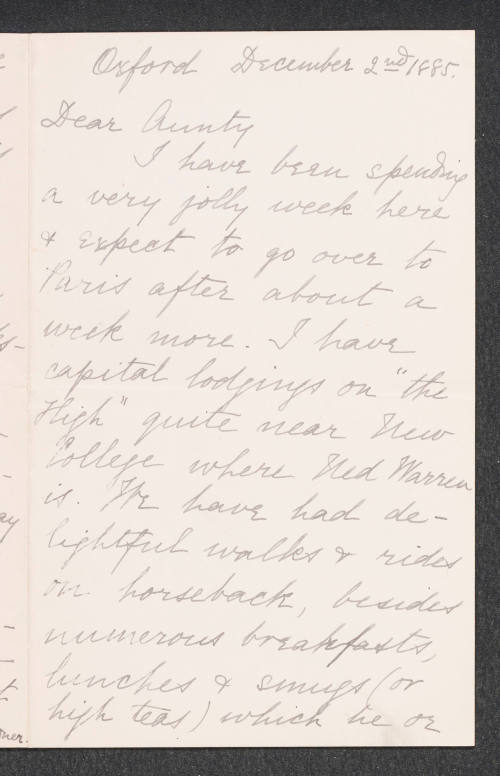 Oxford December 2nd 1885.
Dear Aunty
I have been spending
a very jolly week here
& expect to go over to
Paris after about a
week more. I have
capital lodgings on "the
High" quite near New
College where Ned Warren
is. We have had de-
lightful walks & rides
on horseback, besides
numerous breakfasts,
lunches & smugs (or
high teas) which he or